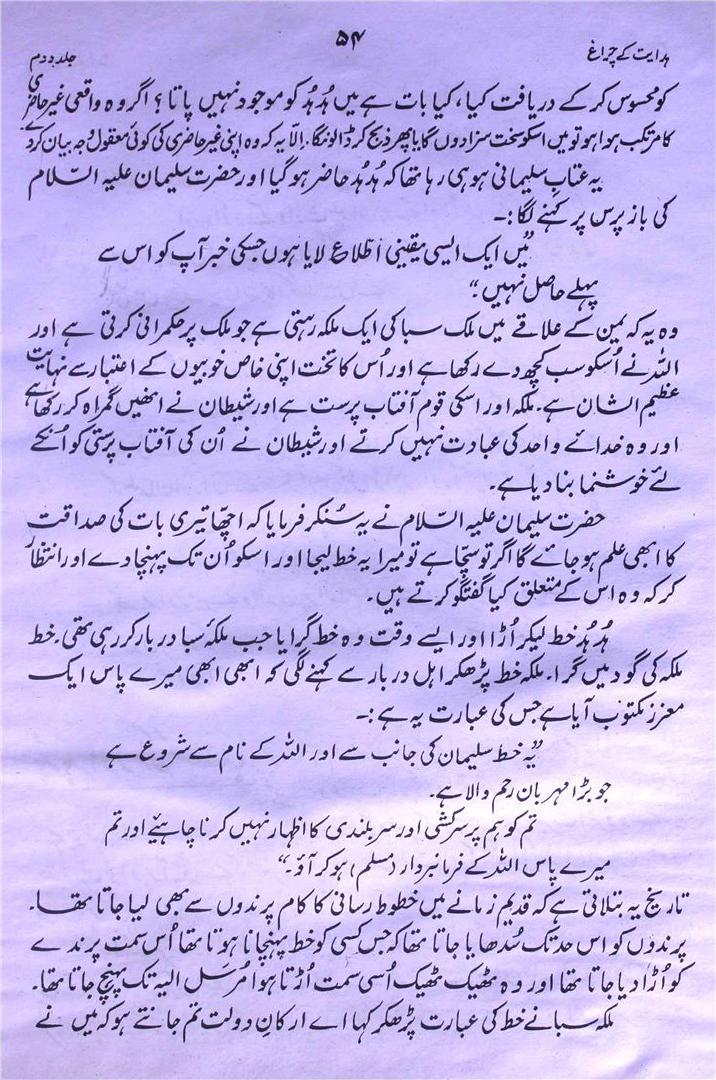 ہدایت کے چراغ
۵۴
جلد دوم
کو محسوس کر کے دریافت کیا، کیا بات ہے میں ہُدہُد کو موجود نہیں پاتا؟ اگر وہ واقعی غیر حاضری
کا مرتکب ہوا ہو تو میں اسکو سخت سزا دوں گا یا پھر ذبح کر ڈالونگا۔ اِلّا یہ کہ وہ اپنی غیر حاضری کی کوئی معقول وجہ بیان کر دے۔
یہ عتابِ سلیمانی ہو ہی رہا تھا کہ ہُدہُد حاضر ہو گیا اور حضرت سلیمان علیہ السّلام
کی باز پرس پر کہنے لگا:۔
”میں ایک ایسی یقینی اطلاع لایا ہوں جسکی خبر آپ کو اس سے
پہلے حاصل نہیں۔“
وہ یہ کہ یمن کے علاقے میں ملک سبا کی ایک ملکہ رہتی ہے جو ملک پر حکمرانی کرتی ہے اور
اللہ نے اُسکو سب کچھ دے رکھا ہے اور اُس کا تخت اپنی خاص خوبیوں کے اعتبار سے نہایت
عظیم الشان ہے۔ ملکہ اور اسکی قوم آفتاب پرست ہے اور شیطان نے انھیں گمراہ کر رکھا ہے
اور وہ خدائے واحد کی عبادت نہیں کرتے اور شیطان نے اُن کی آفتاب پرستی کو اُنکے
لئے خوشنما بنا دیا ہے۔
حضرت سلیمان علیہ السّلام نے یہ سُنکر فرمایا کہ اچھا تیری بات کی صداقت
کا ابھی علم ہو جائے گا اگر تو سچا ہے تو میرا یہ خط لیجا اور اسکو اُن تک پہنچا دے اور انتظار
کر کہ وہ اس کے متعلق کیا گفتگو کرتے ہیں۔
ہُدہُد خط لیکر اُڑا اور ایسے وقت وہ خط گرایا جب ملکۂ سبا دربار کر رہی تھی۔ خط
ملکہ کی گود میں گرا۔ ملکہ خط پڑھکر اہل دربار سے کہنے لگی کہ ابھی ابھی میرے پاس ایک
معزز مکتوب آیا ہے جس کی عبارت یہ ہے:۔
”یہ خط سلیمان کی جانب سے اور اللہ کے نام سے شروع ہے
جو بڑا مہربان رحم والا ہے۔
تم کو ہم پر سرکشی اور سربلندی کا اظہار نہیں کرنا چاہیئے اور تم
میرے پاس اللہ کے فرمانبردار (مسلم) ہو کر آؤ۔“
تاریخ یہ بتلاتی ہے کہ قدیم زمانے میں خطوط رسانی کا کام پرندوں سے بھی لیا جاتا تھا۔
پرندوں کو اس حد تک سُدھایا جاتا تھا کہ جس کسی کو خط پہنچانا ہوتا تھا اُس سمت پرندے
کو اُڑا دیا جاتا تھا اور وہ ٹھیک ٹھیک اُسی سمت اُڑتا ہوا مُرسَل الیہ تک پہنچ جاتا تھا۔
ملکہ سبا نے خط کی عبارت پڑھکر کہا اے ارکانِ دولت تم جانتے ہو کہ میں نے